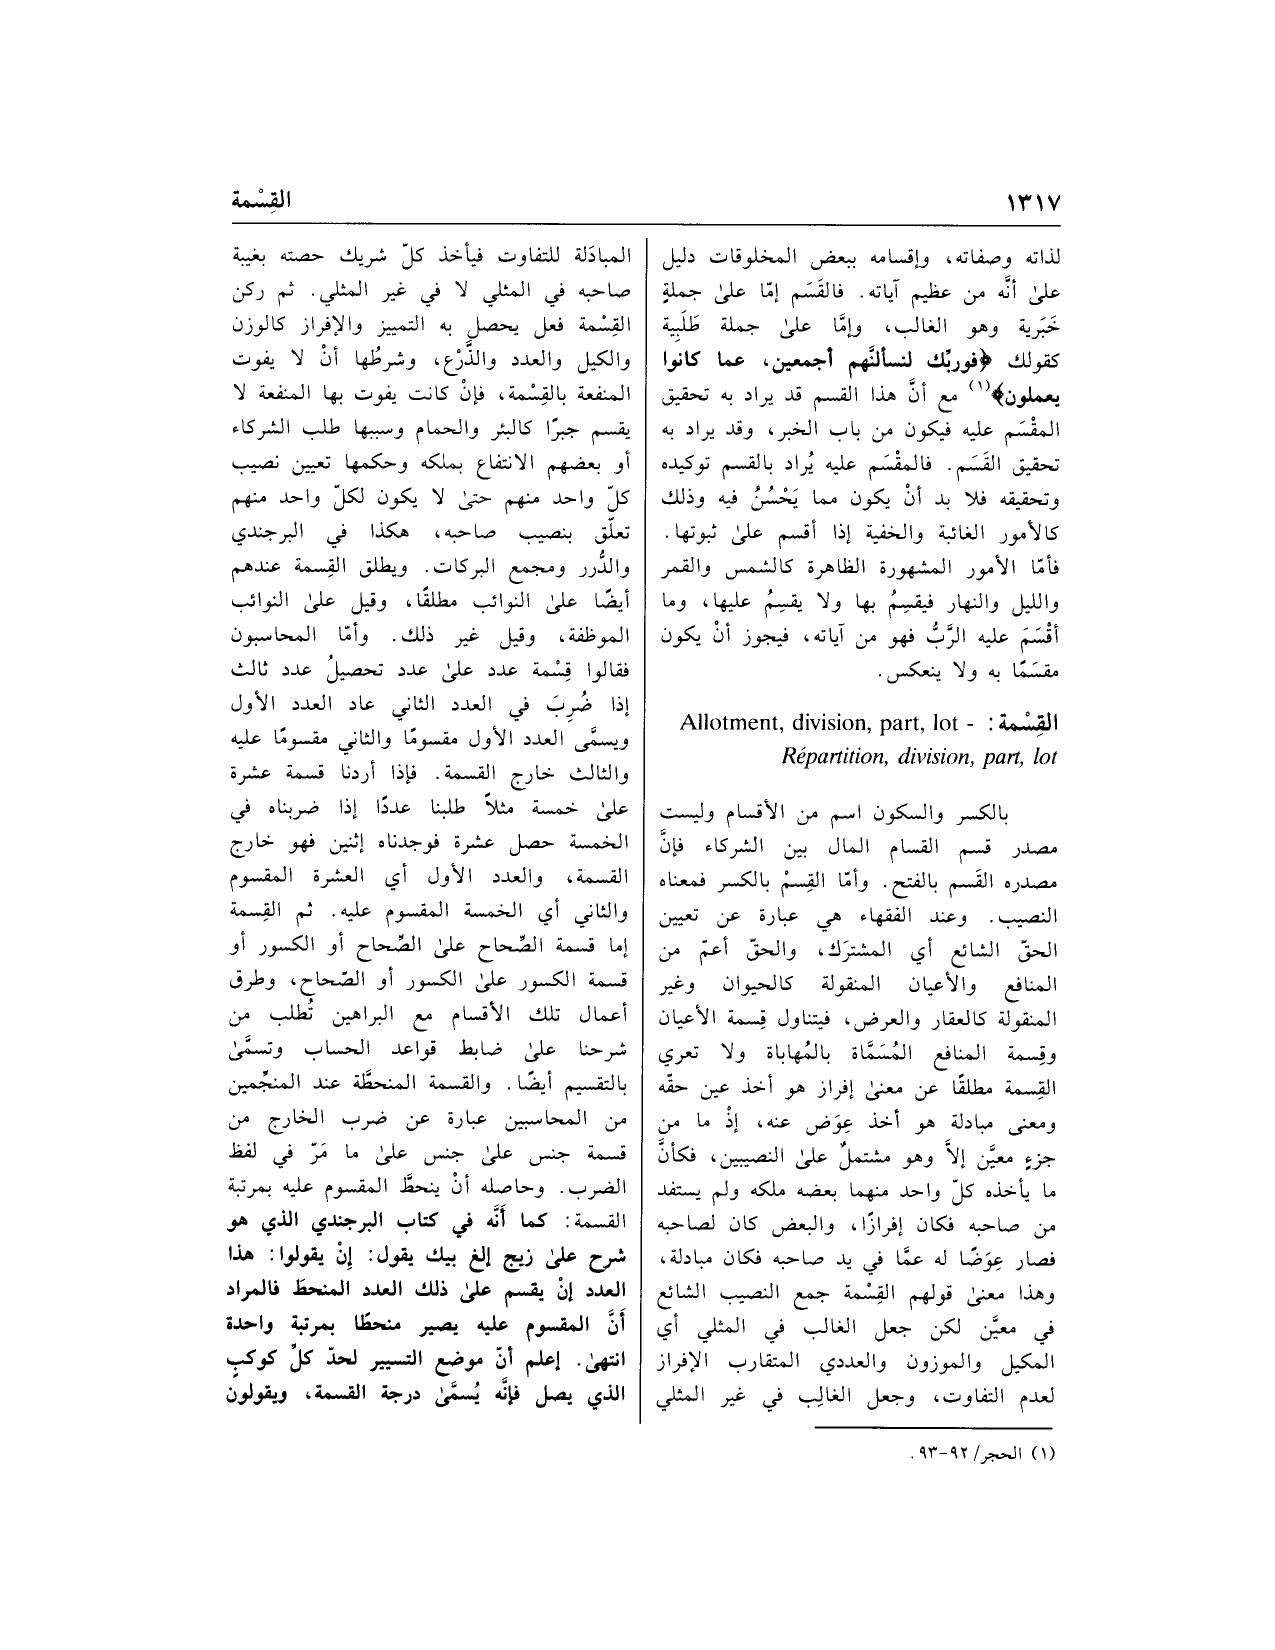 ١٣١٧
القِسْمة
لذاته وصفاته، وإقسامه ببعض المخلوقات دليل
علىٰ أنَّه من عظيم آياته. فالقَسَم إمّا علىٰ جملةٍ
خَبَرية وهو الغالب، وإمَّا علىٰ جملة طَلَبِية
كقولك ﴿فوربّك لنسألنَّهم أجمعين، عما كانوا
يعملون﴾(١) مع أنَّ هذا القسم قد يراد به تحقيق
المقْسَم عليه فيكون من باب الخبر، وقد يراد به
تحقيق القَسَم. فالمقْسَم عليه يُراد بالقسم توكيده
وتحقيقه فلا بد أنْ يكون مما يَحْسُنُ فيه وذلك
كالأمور الغائبة والخفية إذا أقسم علىٰ ثبوتها.
فأمّا الأمور المشهورة الظاهرة كالشمس والقمر
والليل والنهار فيقسِمُ بها ولا يقسِمُ عليها، وما
أقْسَمَ عليه الرَّبُّ فهو من آياته، فيجوز أنْ يكون
مقسَمًا به ولا ينعكس.
القِسْمة: - Allotment, division, part, lot
Répartition, division, part, lot
بالكسر والسكون اسم من الأقسام وليست
مصدر قسم القسام المال بين الشركاء فإنَّ
مصدره القَسم بالفتح. وأمّا القِسمْ بالكسر فمعناه
النصيب. وعند الفقهاء هي عبارة عن تعيين
الحقّ الشائع أي المشترَك، والحقّ أعمّ من
المنافع والأعيان المنقولة كالحيوان وغير
المنقولة كالعقار والعرض، فيتناول قِسمة الأعيان
وقِسمة المنافع المُسَمَّاة بالمُهاباة ولا تعري
القِسمة مطلقًا عن معنىٰ إفراز هو أخذ عين حقّه
ومعنى مبادلة هو أخذ عِوَض عنه، إذْ ما من
جزءٍ معيَّن إلاَّ وهو مشتملٌ علىٰ النصيبين، فكأنَّ
ما يأخذه كلّ واحد منهما بعضه ملكه ولم يستفد
من صاحبه فكان إفرازًا، والبعض كان لصاحبه
فصار عِوَضًا له عمَّا في يد صاحبه فكان مبادلة،
وهذا معنىٰ قولهم القِسْمة جمع النصيب الشائع
في معيَّن لكن جعل الغالب في المثلي أي
المكيل والموزون والعددي المتقارب الإفراز
لعدم التفاوت، وجعل الغالِب في غير المثلي
(١) الحجر/ ٩٢-٩٣.
المبادَلة للتفاوت فيأخذ كلّ شريك حصته بغيبة
صاحبه في المثلي لا في غير المثلي. ثم ركن
القِسْمة فعل يحصل به التمييز والإفراز كالوزن
والكيل والعدد والذَّرْع، وشرطُها أنْ لا يفوت
المنفعة بالقِسْمة، فإنْ كانت يفوت بها المنفعة لا
يقسم جبرًا كالبئر والحمام وسببها طلب الشركاء
أو بعضهم الانتفاع بملكه وحكمها تعيين نصيب
كلّ واحد منهم حتىٰ لا يكون لكلّ واحد منهم
تعلّق بنصيب صاحبه، هكذا في البرجندي
والدُّرر ومجمع البركات. ويطلق القِسمة عندهم
أيضًا علىٰ النوائب مطلقًا، وقيل علىٰ النوائب
الموظفة، وقيل غير ذلك. وأمّا المحاسبون
فقالوا قِسْمة عدد علىٰ عدد تحصيلُ عدد ثالث
إذا ضُرِبَ في العدد الثاني عاد العدد الأول
ويسمَّى العدد الأول مقسومًا والثاني مقسومًا عليه
والثالث خارج القسمة. فإذا أردنا قسمة عشرة
علىٰ خمسة مثلاً طلبنا عددًا إذا ضربناه في
الخمسة حصل عشرة فوجدناه إثنين فهو خارج
القسمة، والعدد الأول أي العشرة المقسوم
والثاني أي الخمسة المقسوم عليه. ثم القِسمة
إما قسمة الصِّحاح علىٰ الصِّحاح أو الكسور أو
قسمة الكسور علىٰ الكسور أو الصّحاح، وطرق
أعمال تلك الأقسام مع البراهين تُطلب من
شرحنا علىٰ ضابط قواعد الحساب وتسمَّىٰ
بالتقسيم أيضًا. والقسمة المنحطَّة عند المنجِّمين
من المحاسبين عبارة عن ضرب الخارج من
قسمة جنس علىٰ جنس علىٰ ما مَرّ في لفظ
الضرب. وحاصله أنْ ينحطَّ المقسوم عليه بمرتبة
القسمة: كما أَنَّه في كتاب البرجندي الذي هو
شرح علىٰ زيج إلغ بيك يقول: إنْ يقولوا: هذا
العدد إنْ يقسم علىٰ ذلك العدد المنحطَ فالمراد
أَنَّ المقسوم عليه يصير منحطًا بمرتبة واحدة
انتهىٰ. إعلم أنّ موضع التسيير لحدّ كلِّ كوكبٍ
الذي يصل فإنَّه يُسمَّىٰ درجة القسمة، ويقولون